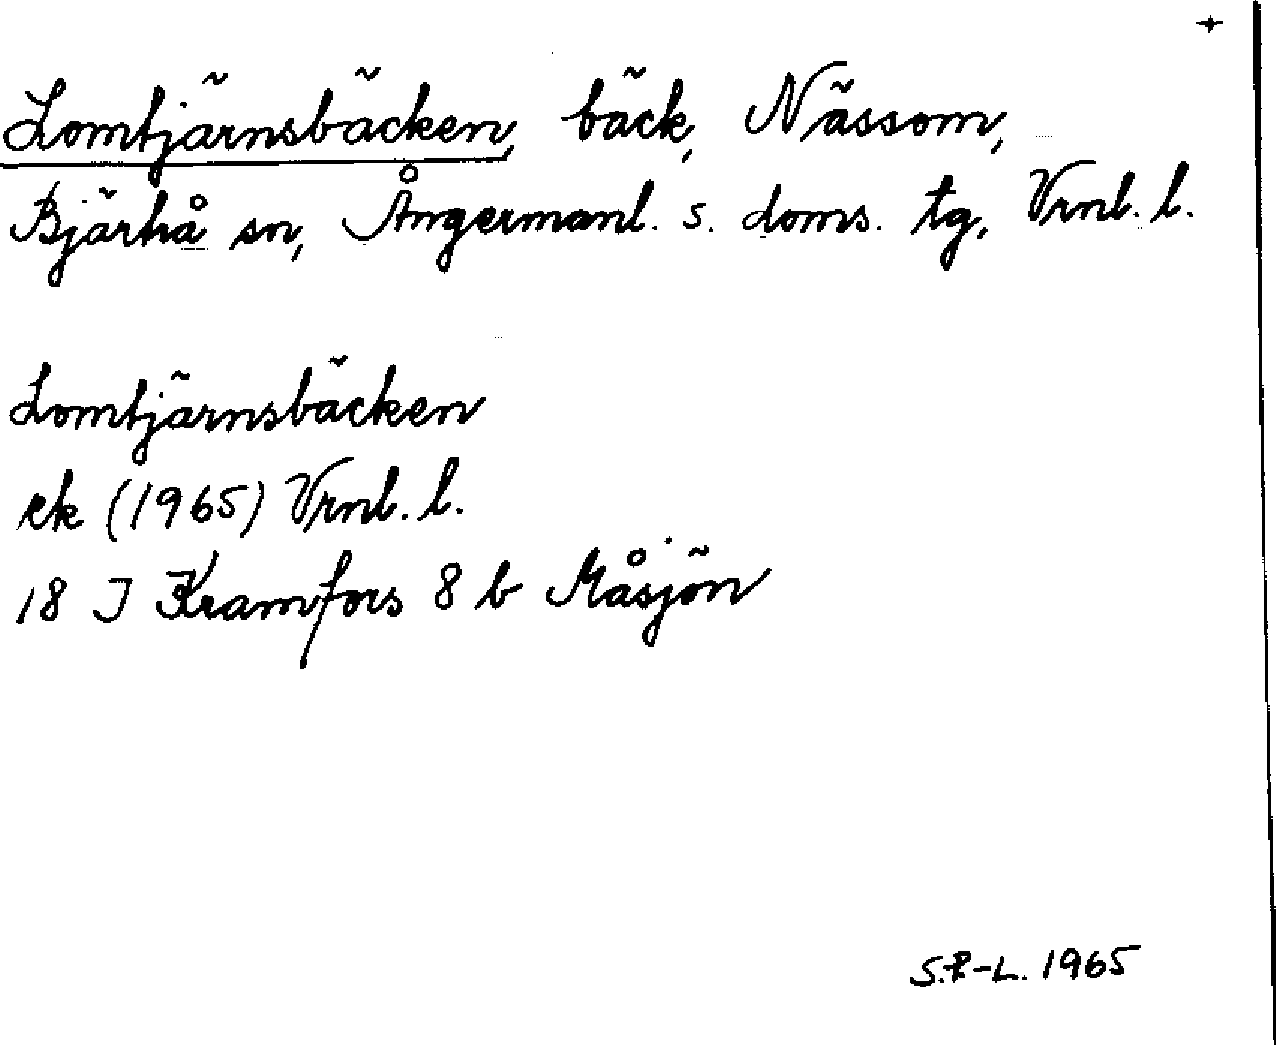 +
Lomtjärnsbäcken, bäck, Nässom,
Bjärtrå sn, Ångermanl. s. doms. tg, Vrnl. l.
Lomtjärnsbäcken
ek (1965) Vrnl. l.
18 J Kramfors 8 b Måsjön
S.P-L. 1965